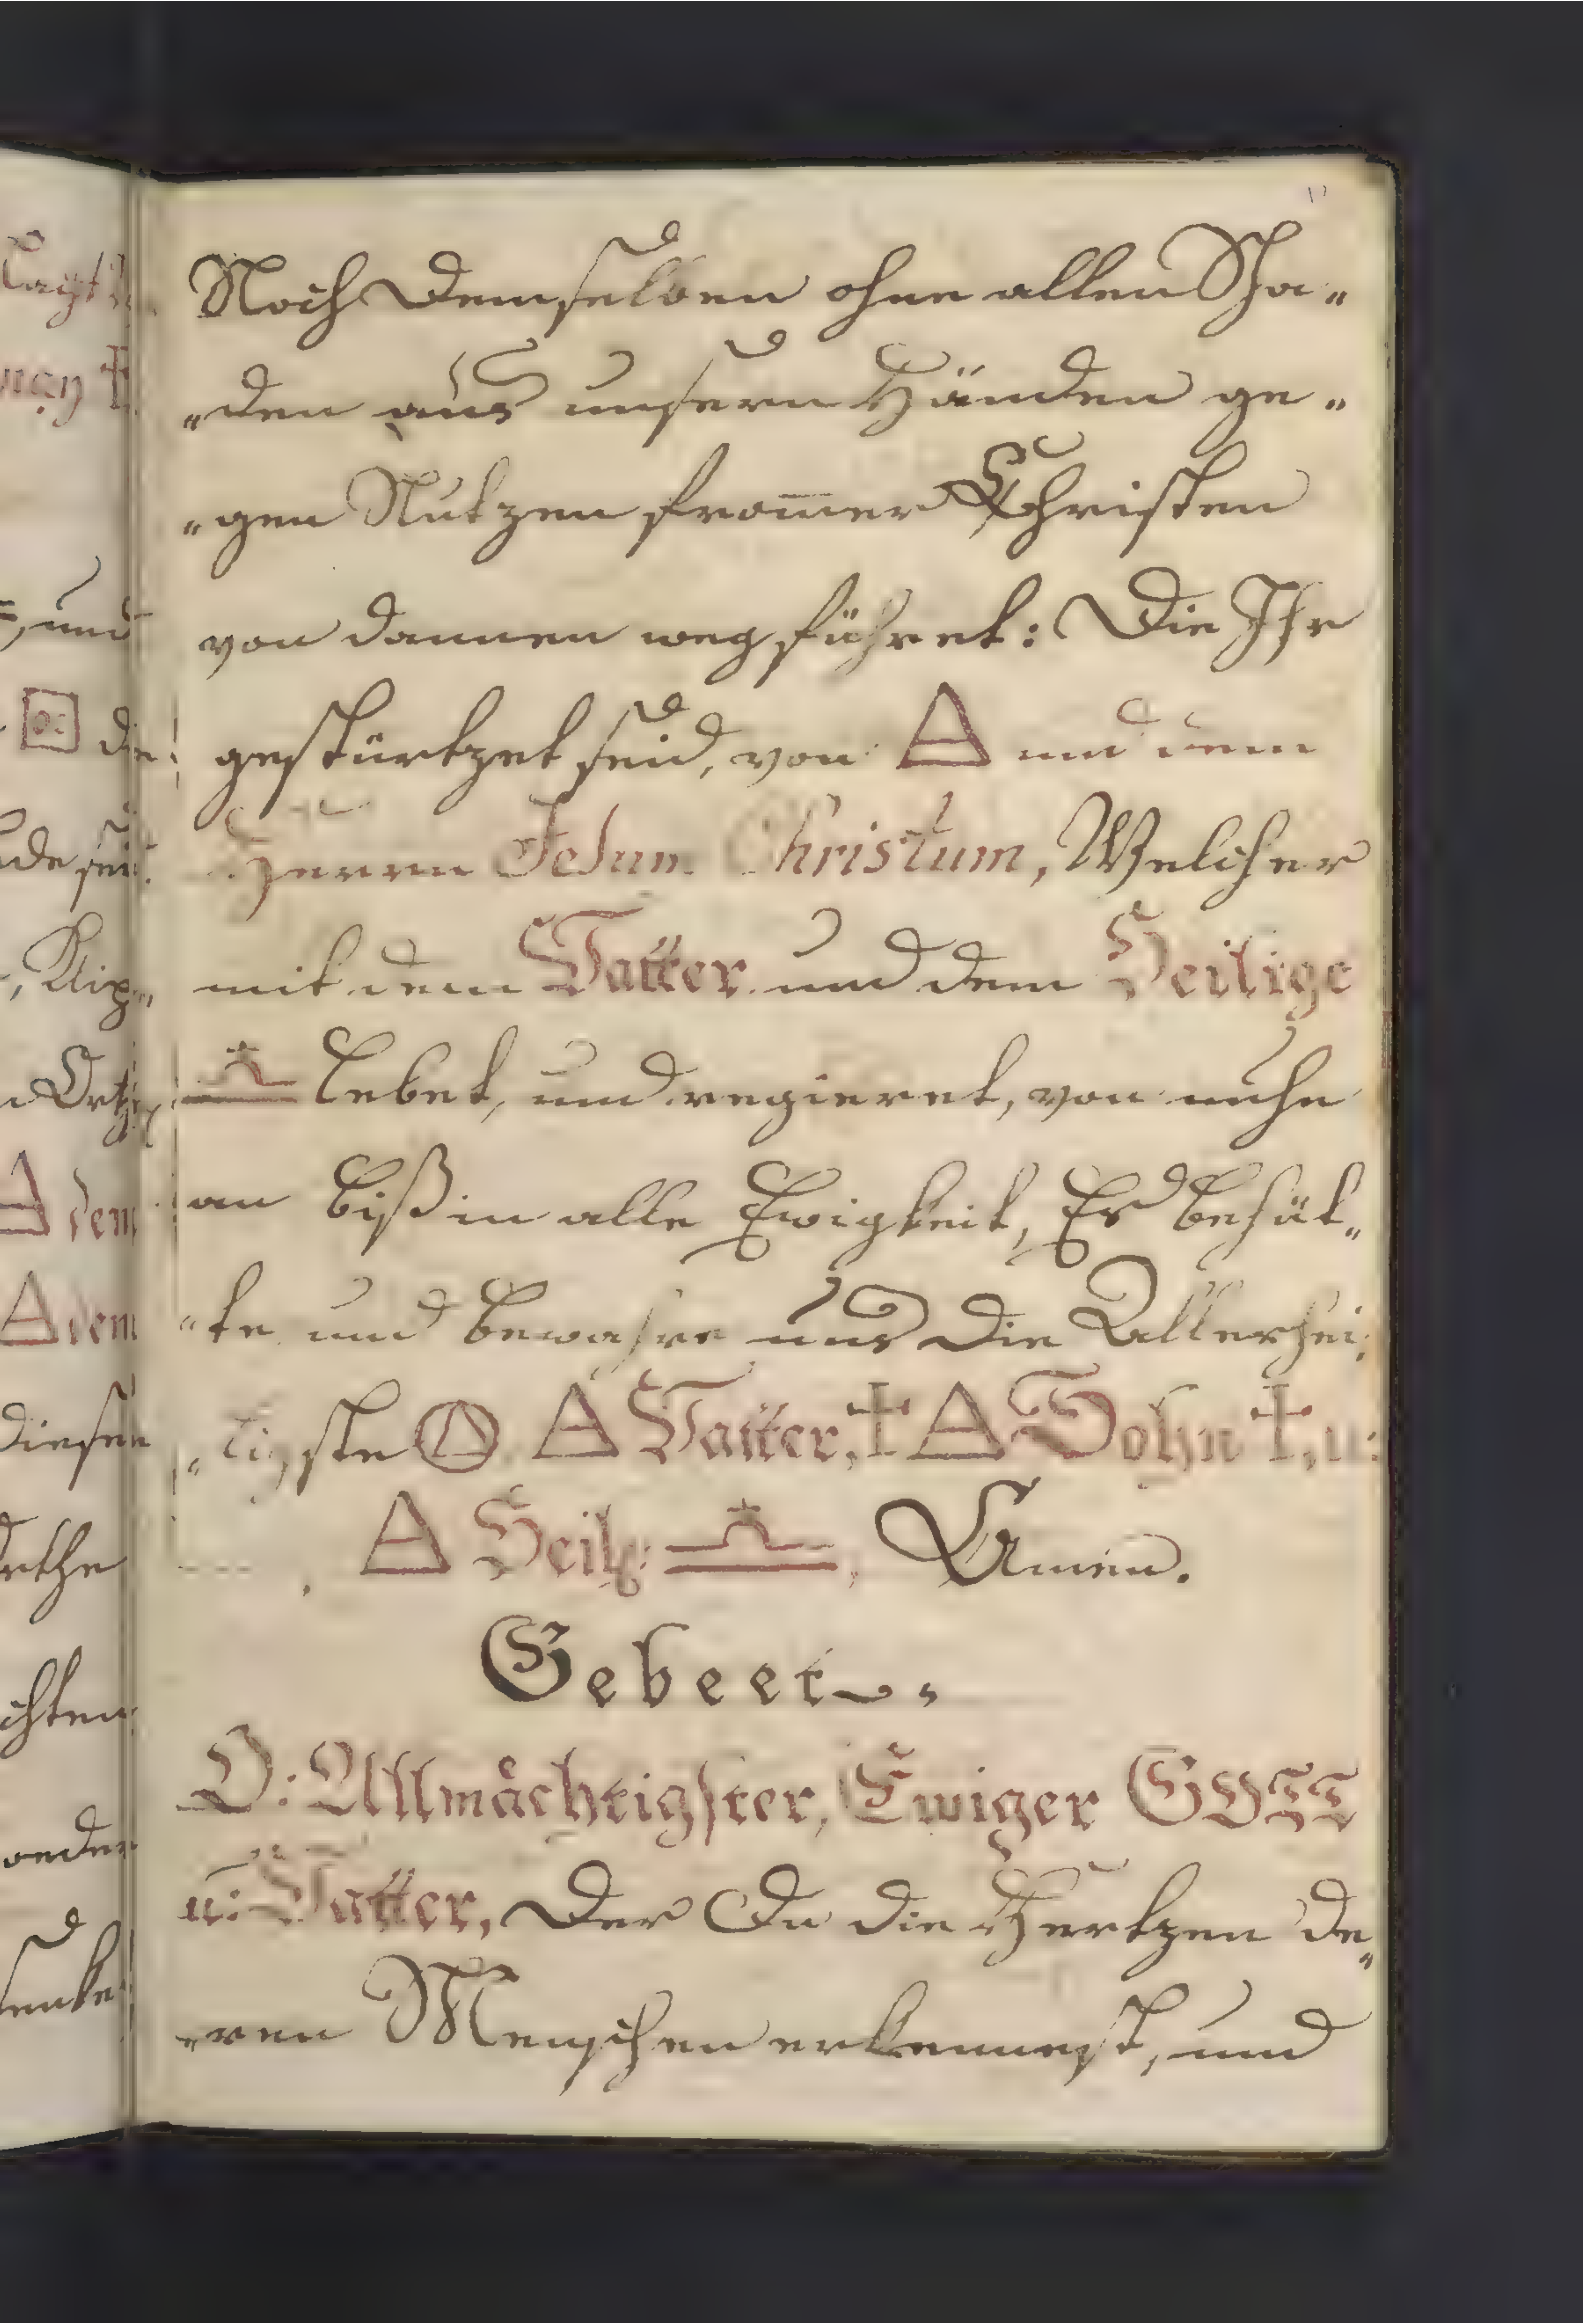 Noch Demselben ohne allen Scha„
„den aus unsern Händen ge„
„gen Nutzen from̅er Christen
von dannen wegführet: Die Ihr
gestürtzet seid, von 🜁 und dem
Herrn Jesum Christum, Welcher
mit dem Vatter und dem Heilige
♎ lebet, und regieret, von nuhn
an biß in alle Ewigkeit, Er behüt„
„te und bewahre uns die Allerhei„
„ligste 🜁 Vatter, † 🜁 Sohn †, u:
🜁 Heilg: ♎, Amen.
Gebeet.
O: Allmächtigster, Ewiger GOTT
u: Vatter, Der Du die Hertzen de„
„ren Menschen erkennest, und